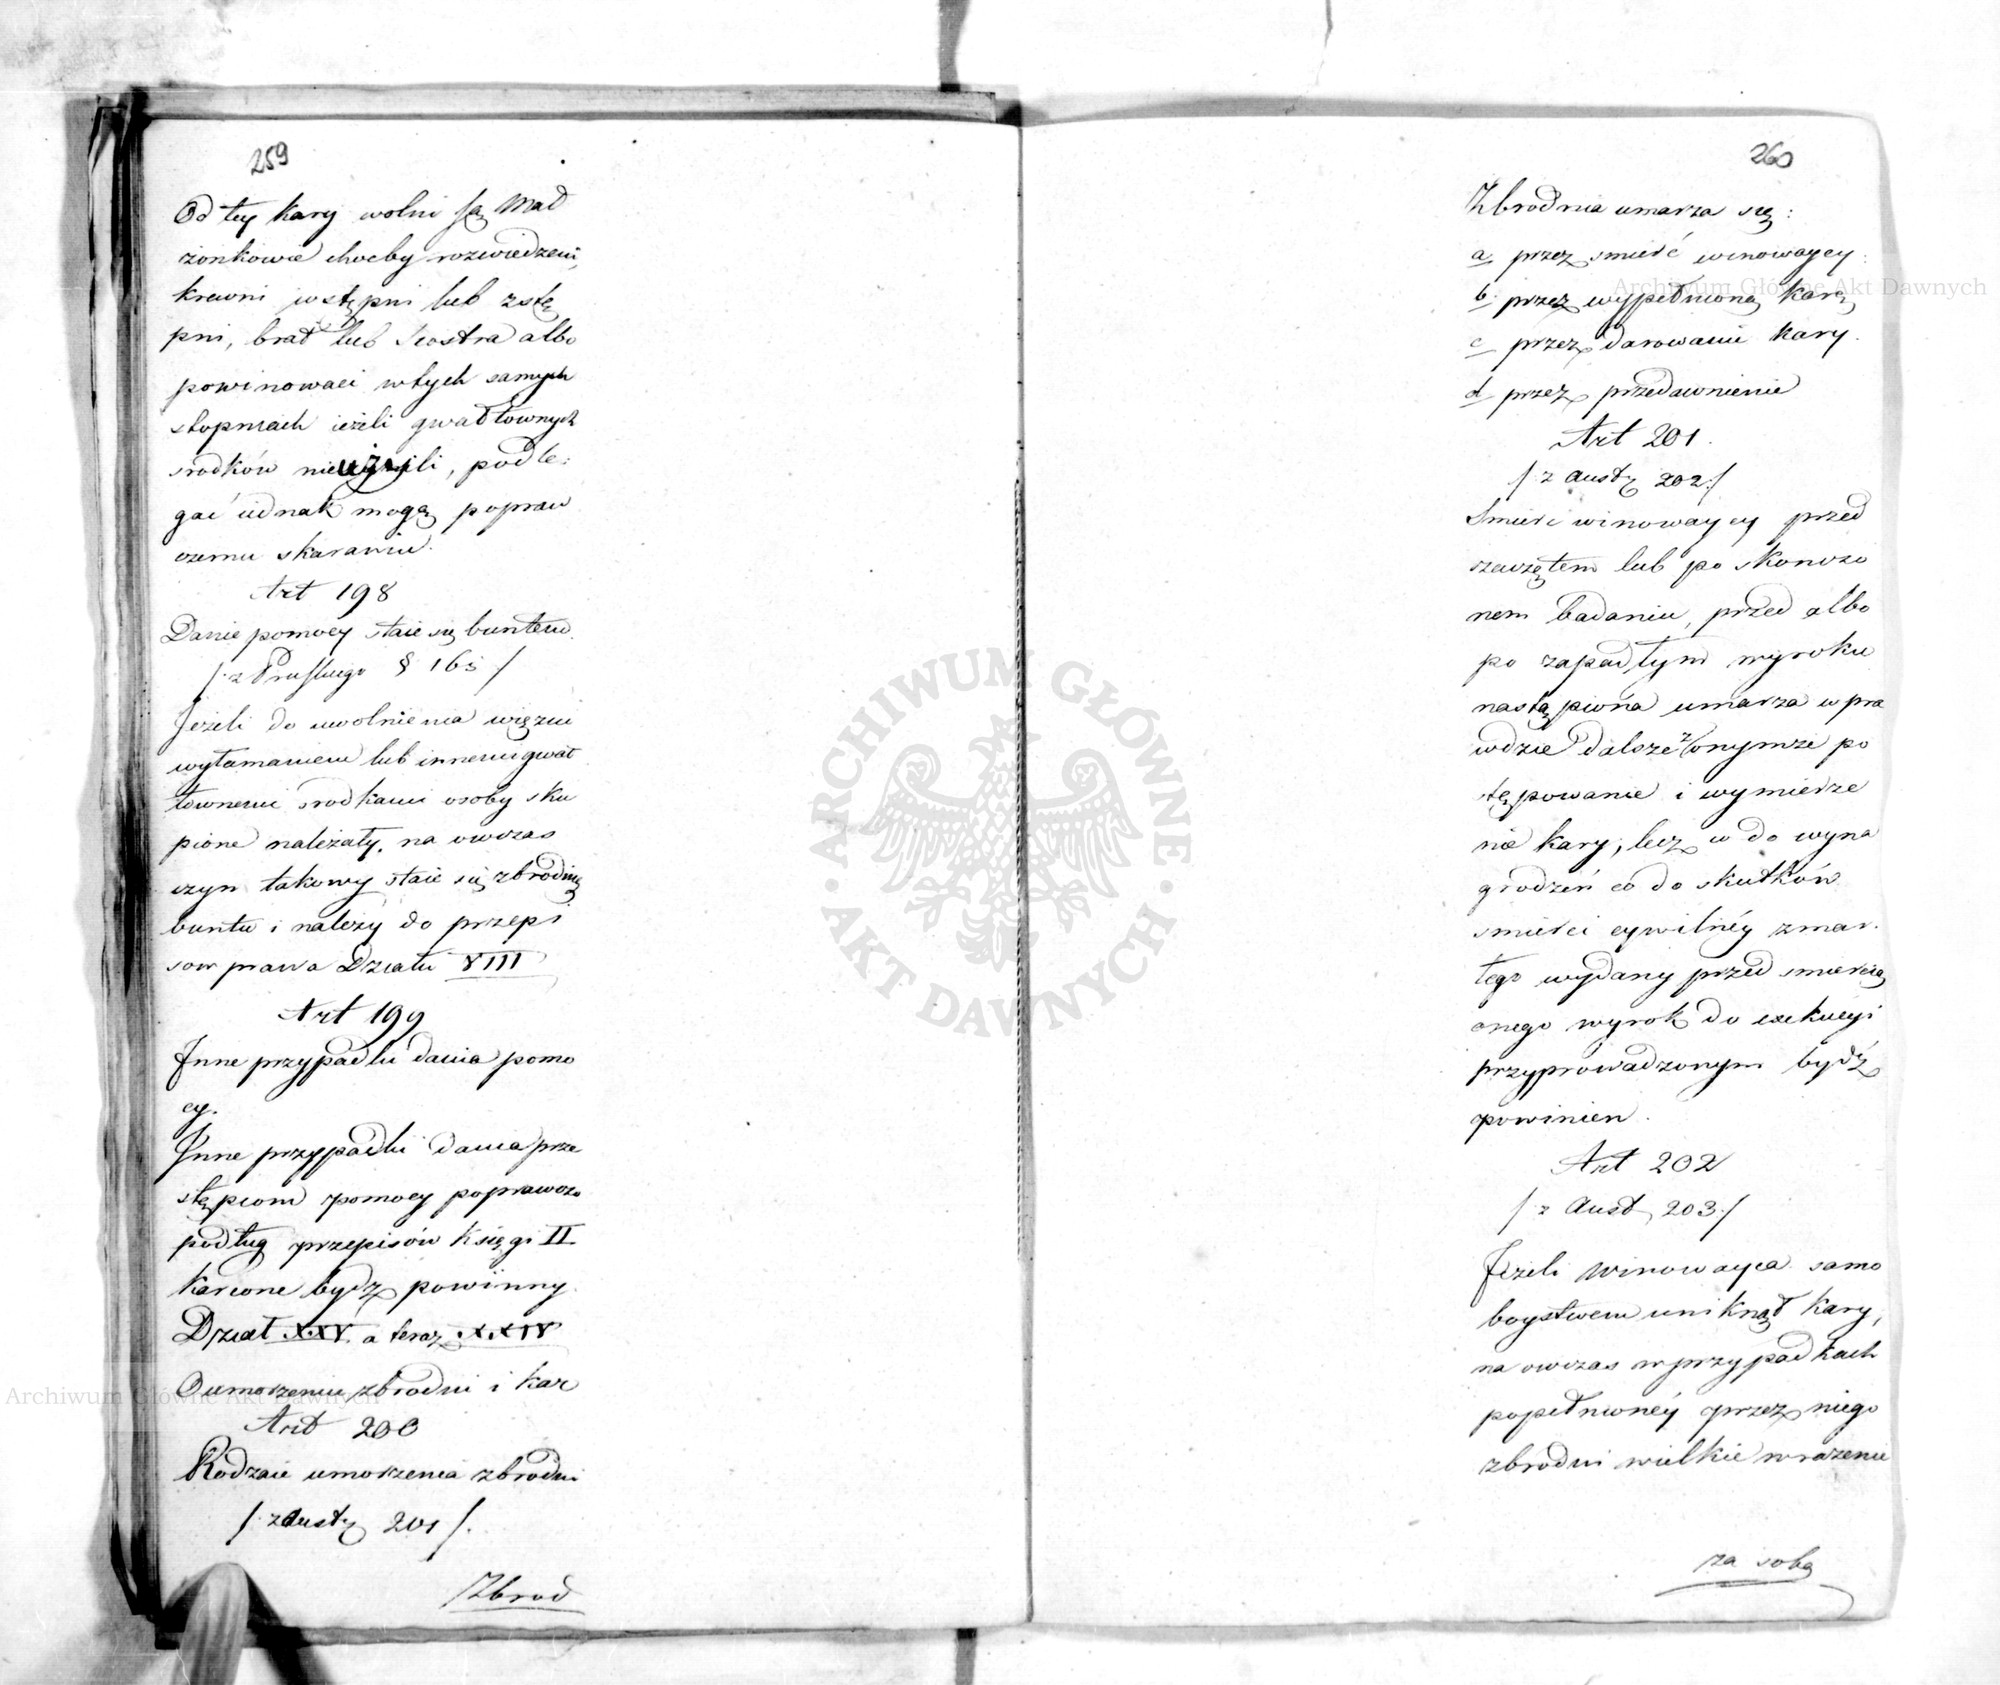 259
Od tey kary wolni są Mał
żonkowie choćby rozwiedzeni,
krewni wstępni lub zstę
pni, brat lub Siostra albo
powinowaci w tych samych
stopniach ieżeli gwałtownych
srodków nie użyli, podle:
gać iednak mogą popraw
czemu skaraniu.
Art 198
Danie pomocy staie się buntem.
/: z Pruskiego § 165 /
Jeżeli do uwolnienia więźni
wyłamaniem lub innemi gwał
townemi srodkami osoby sku
pione należały, na owczas
czyn takowy staie się zbrodnią
buntu i należy do przepi
sow prawa Działu VIII
Art 199
Jnne przypadki dania pomo
cy.
Jnne przypadki dania prze
stępcom pomocy poprawczo
podług przepisów Księgi II
karcone bydz powinny.
Dział XXV. a teraz XXIV
O umorzeniu zbrodni i kar
Art 200
Rodzaie umorzenia zbrodni
/: z Austr 201 /.
Zbrod
260
Zbrodnia umarza się:
a przez smierć winowaycy.
b. przez wypełnioną karę
c przez darowanie kary.
d przez przedawnienie
Art 201.
/: z Austr 202:/
Smierć winowaycy przed
szczętem lub po skonczo
nem badaniu, przed albo
po zapadłym wyroku
nastąpiona umarza w pra
wdzie dalsze z onymze po
stępowanie i wymierze
nie kary, lecz w do wyna
grodzeń co do skutków
smierci cywilnéy zmar.
łego wydany przed smiercią
onego wyrok do exekucyi
przyprowadzonym bydź
powinien.
Art 202
/: z Aust, 203:/
Jeżeli winowayca samo
boystwem uniknął kary,
na owczas w przypadkach
popełnionéy przez niego
zbrodni wielkie wrażenie
za sobą
ARCHIWUM GŁÓWNE
AKT DAWNYCH
Archiwum Główne Akt Dawnych
Archiwum Główne Akt Dawnych